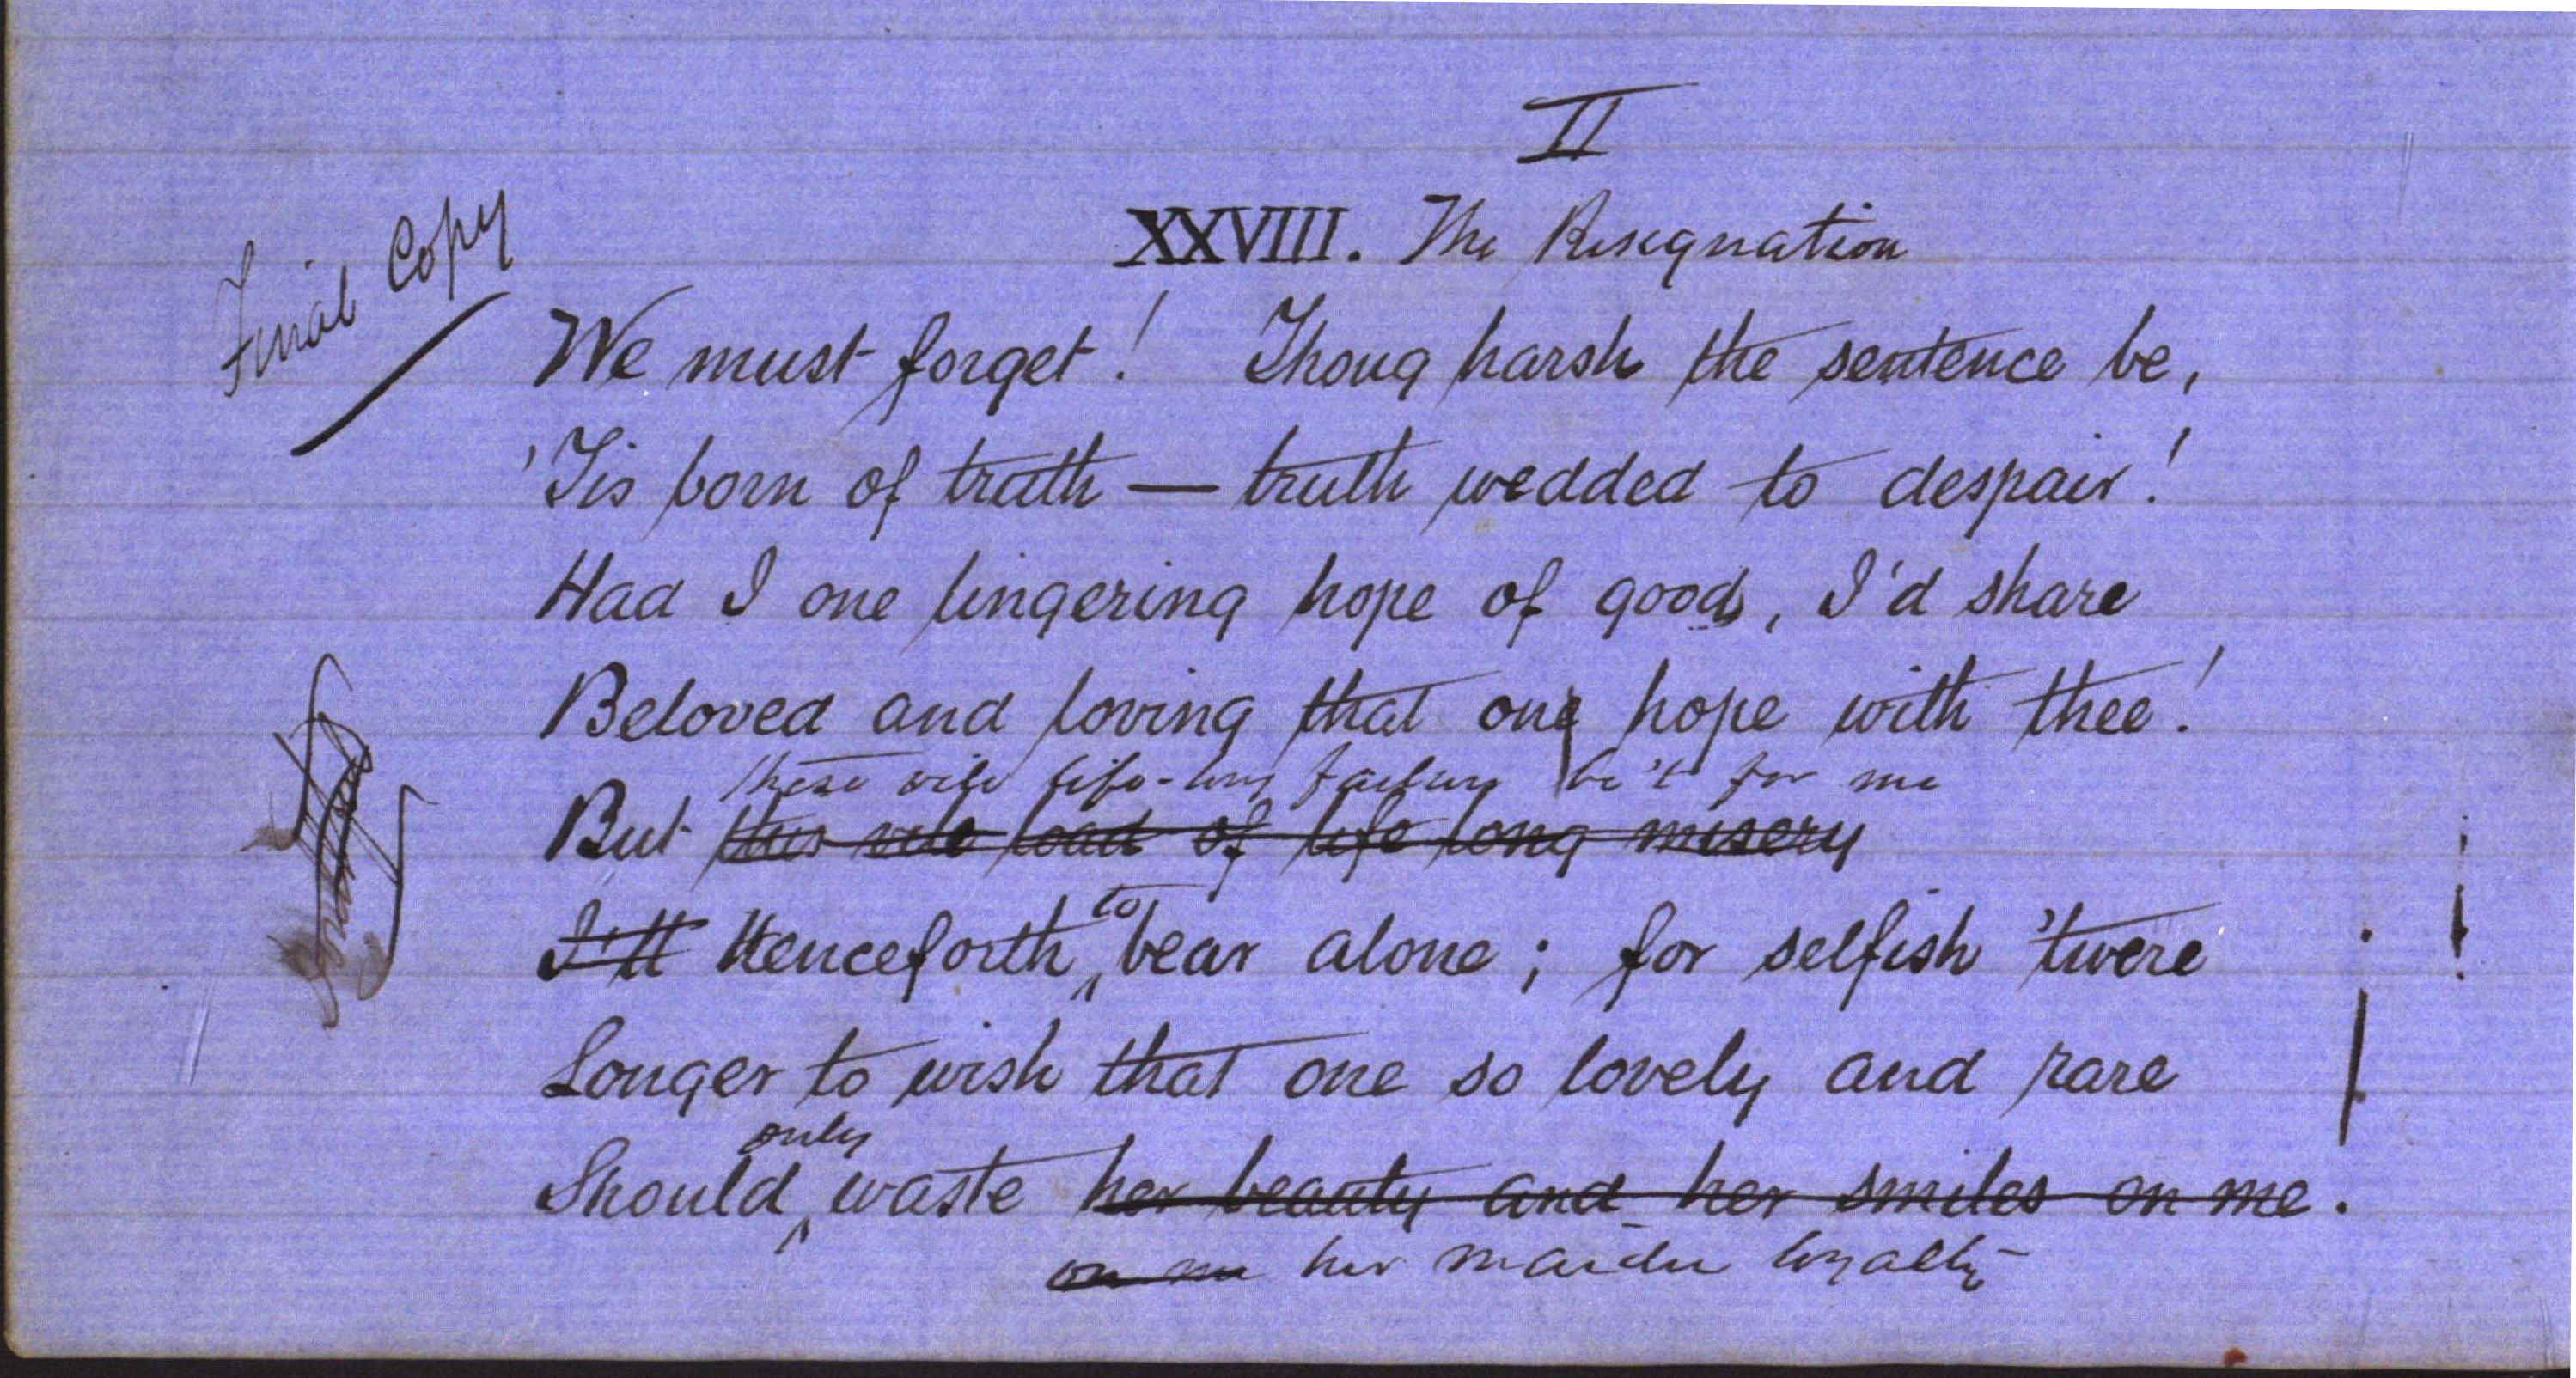 II
XXVIII. The Resignation
Final Copy
We must forget! Thoug harsh the sentence be,
'Tis born of truth — truth wedded to despair!
Had I one lingering hope of good, I'd share
Beloved and loving that one hope with thee!
these vile life-long failure be't for me
But this vile load of life long misery
to
I'll Henceforth bear alone; for selfish 'twere
Longer to wish that one so lovely and rare
only
Should waste her beauty and her smiles on me.
on me her maiden loyalty